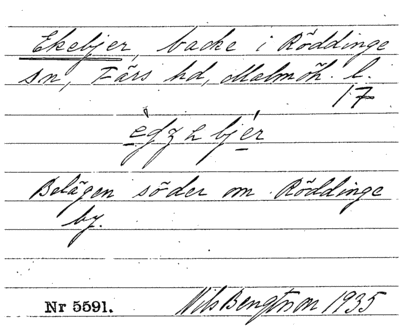 Ekebjer, backe i Röddinge
sn, Färs hd, Malmöh. l.
17
bjér
Belägen söder om Röddinge
by.
Nr 5591. Nils Bengtsson 1935